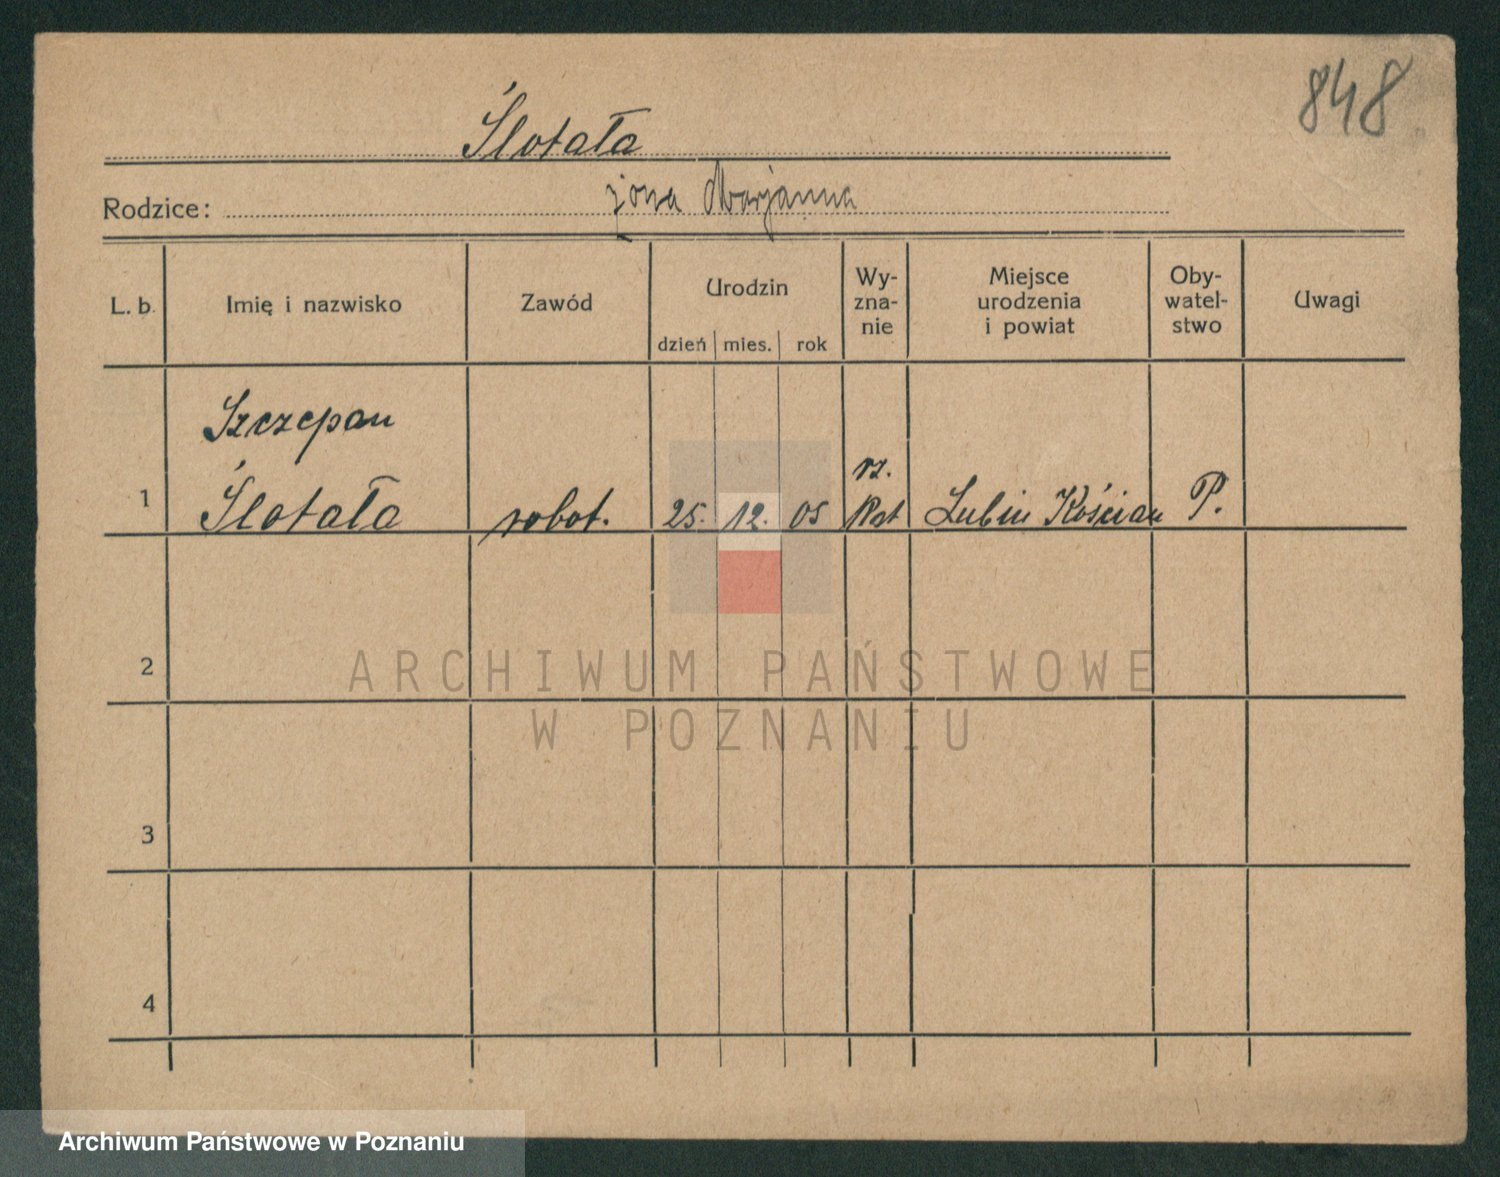 848
Ślotała
Rodzice: żona Marjanna
L. b. Imię i nazwisko Zawód Urodzin dzień mies. rok Wy-zna-nie Miejsce urodzenia i powiat Oby-watel-stwo Uwagi
Szczepan
1 Ślotała robot. 25. 12. 05 rz. Kat Lubiń Kościan P.
2
3
4
ARCHIWUM PAŃSTWOWE
W POZNANIU
Archiwum Państwowe w Poznaniu